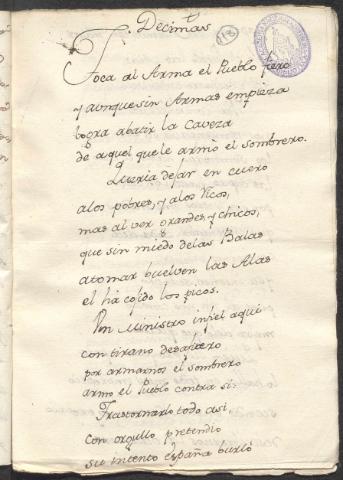 Decimas
118
Toca al Arma el Pueblo fiero
y aunque sin Armas empieza
logra abatir la Caveza
de aquel que le armò el sombrero.
Queria dejar en cuero
a los pobres, y a los Ricos,
mas al ver grandes, y chicos,
que sin miedo de las Balas
a tomar buelven las Alas
el ha cojido los picos.
Un Ministro infiel aqui
con tirano desafuero
por armarnos el sombrero
armo el Pueblo contra si:
Trastornarlo todo asi
con orgullo pretendio
su intento España burlò